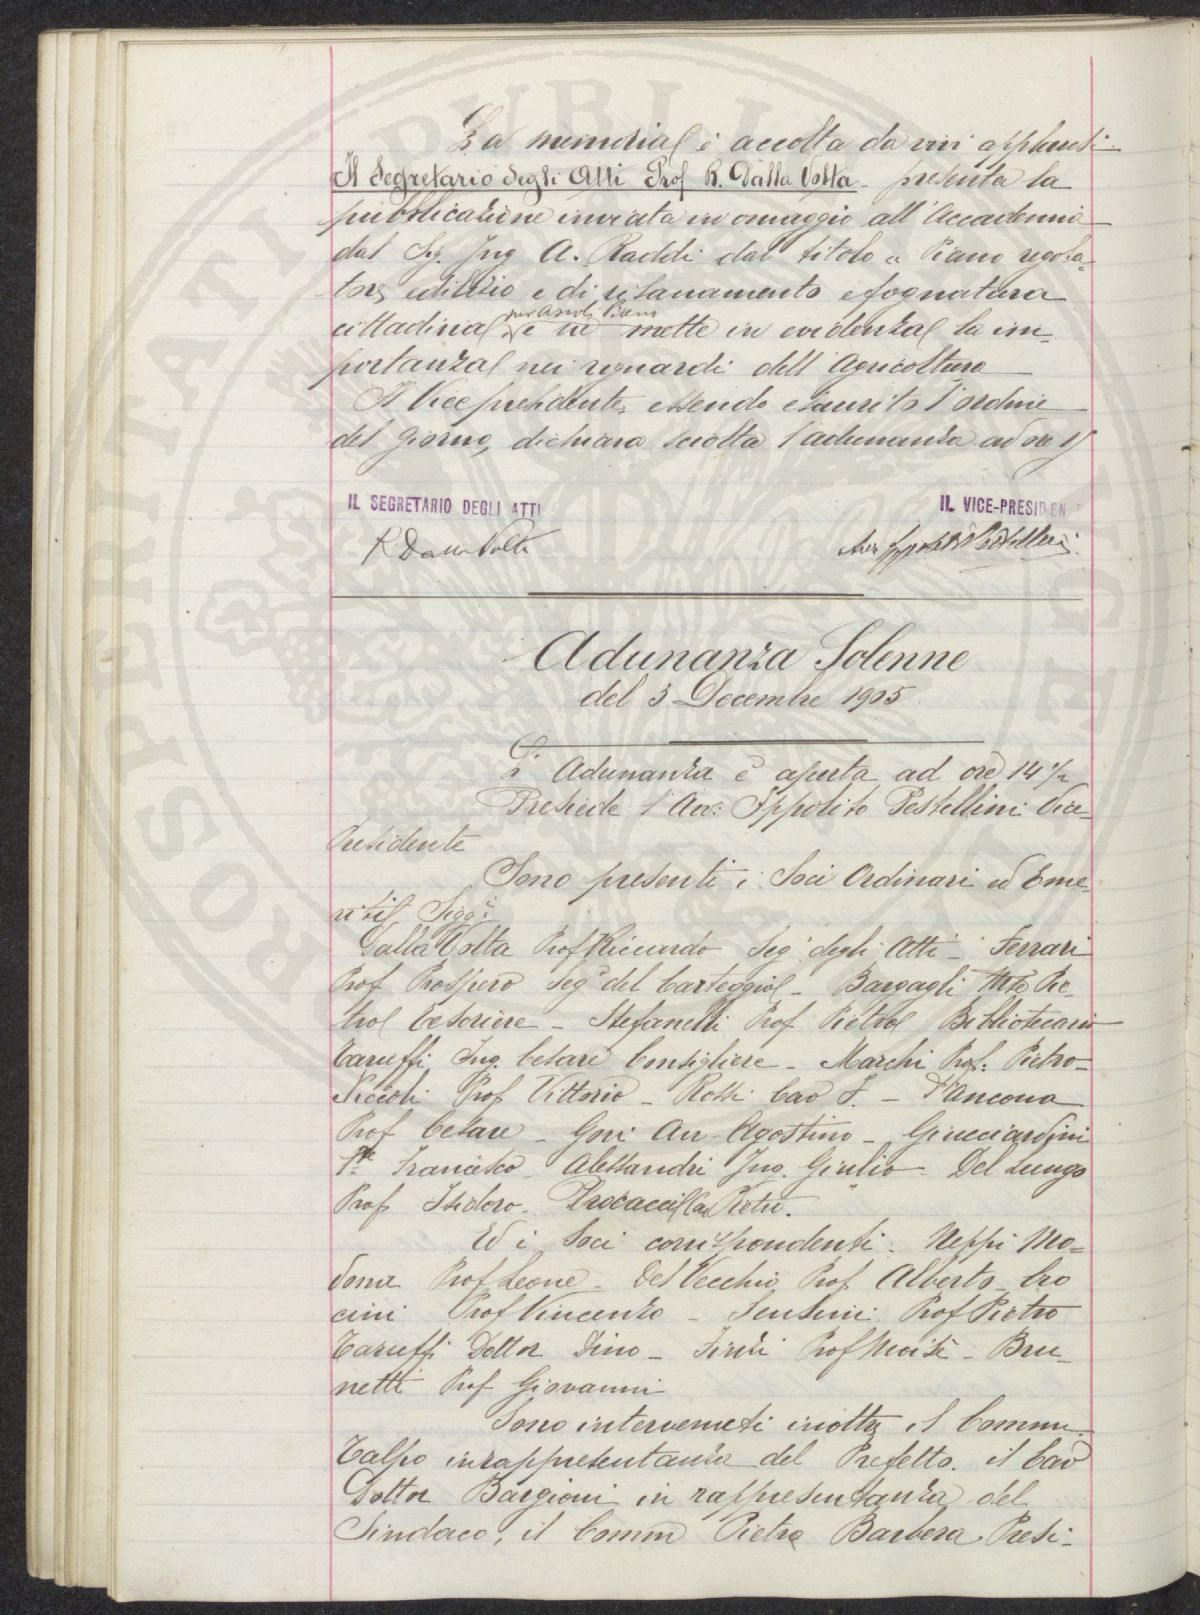 La memoria è accolta da vivi applausi.
Il Segretario degli Atti Prof R. Dalla Volta presenta la
pubblicazione inviata in omaggio all'Accademia
dal Sig. Ing A. Raddi dal titolo « Piano regola-
tore edilizio e di risanamento e fognatura
per Ascoli Piceno
cittadina e ne mette in evidenza la im-
portanza nei riguardi dell'Agricoltura
Il Vicepresidente, essendo esaurito l'ordine
del giorno, dichiara sciolta l'adunanza ad ore
IL SEGRETARIO DEGLI ATTI
IL VICE-PRESIDEN
R. Dalla Volta
Avv Ippolito Pestellini
Adunanza Solenne
del 3 Decembre 1905
L'Adunanza è aperta ad ore 14 1/2
Presiede l'Avv: Ippolito Pestellini Vice-
Presidente
Sono presenti i Soci Ordinari ed Eme-
riti Sigg:ri
Dalla Volta Prof Riccardo Seg° degli Atti - Ferrari
Prof Prospero Seg° del Carteggio - Bargagli Mse Pie-
tro Tesoriere - Stefanelli Prof Pietro Bibliotecario
Taruffi Ing. Cesare Consigliere - Marchi Prof: Pietro -
Niccoli Prof Vittorio - Rossi Cav F. - D'Ancona
Prof Cesare - Gori Avv Agostino - Guicciardini
Francesco - Alessandri Ing. Giulio - Del Lungo
Prof Isidoro - Procacci Cav Pietro.
Ed i Soci corrispondenti: Neppi Mo-
dona Prof Leone - Del Vecchio Prof Alberto -
cini Prof Vincenzo - Sensini Prof Pietro
Taruffi Dottor Dino - Finzi Prof Moisè - Bru-
netti Prof Giovanni
Sono intervenuti inoltre il Comm.
Talpo in rappresentanza del Prefetto. il Cav
Dottor Bargioni in rappresentanza del
Sindaco, il Comm Pietro Barbera Presi-
PROSPERITATI PUBLICAE